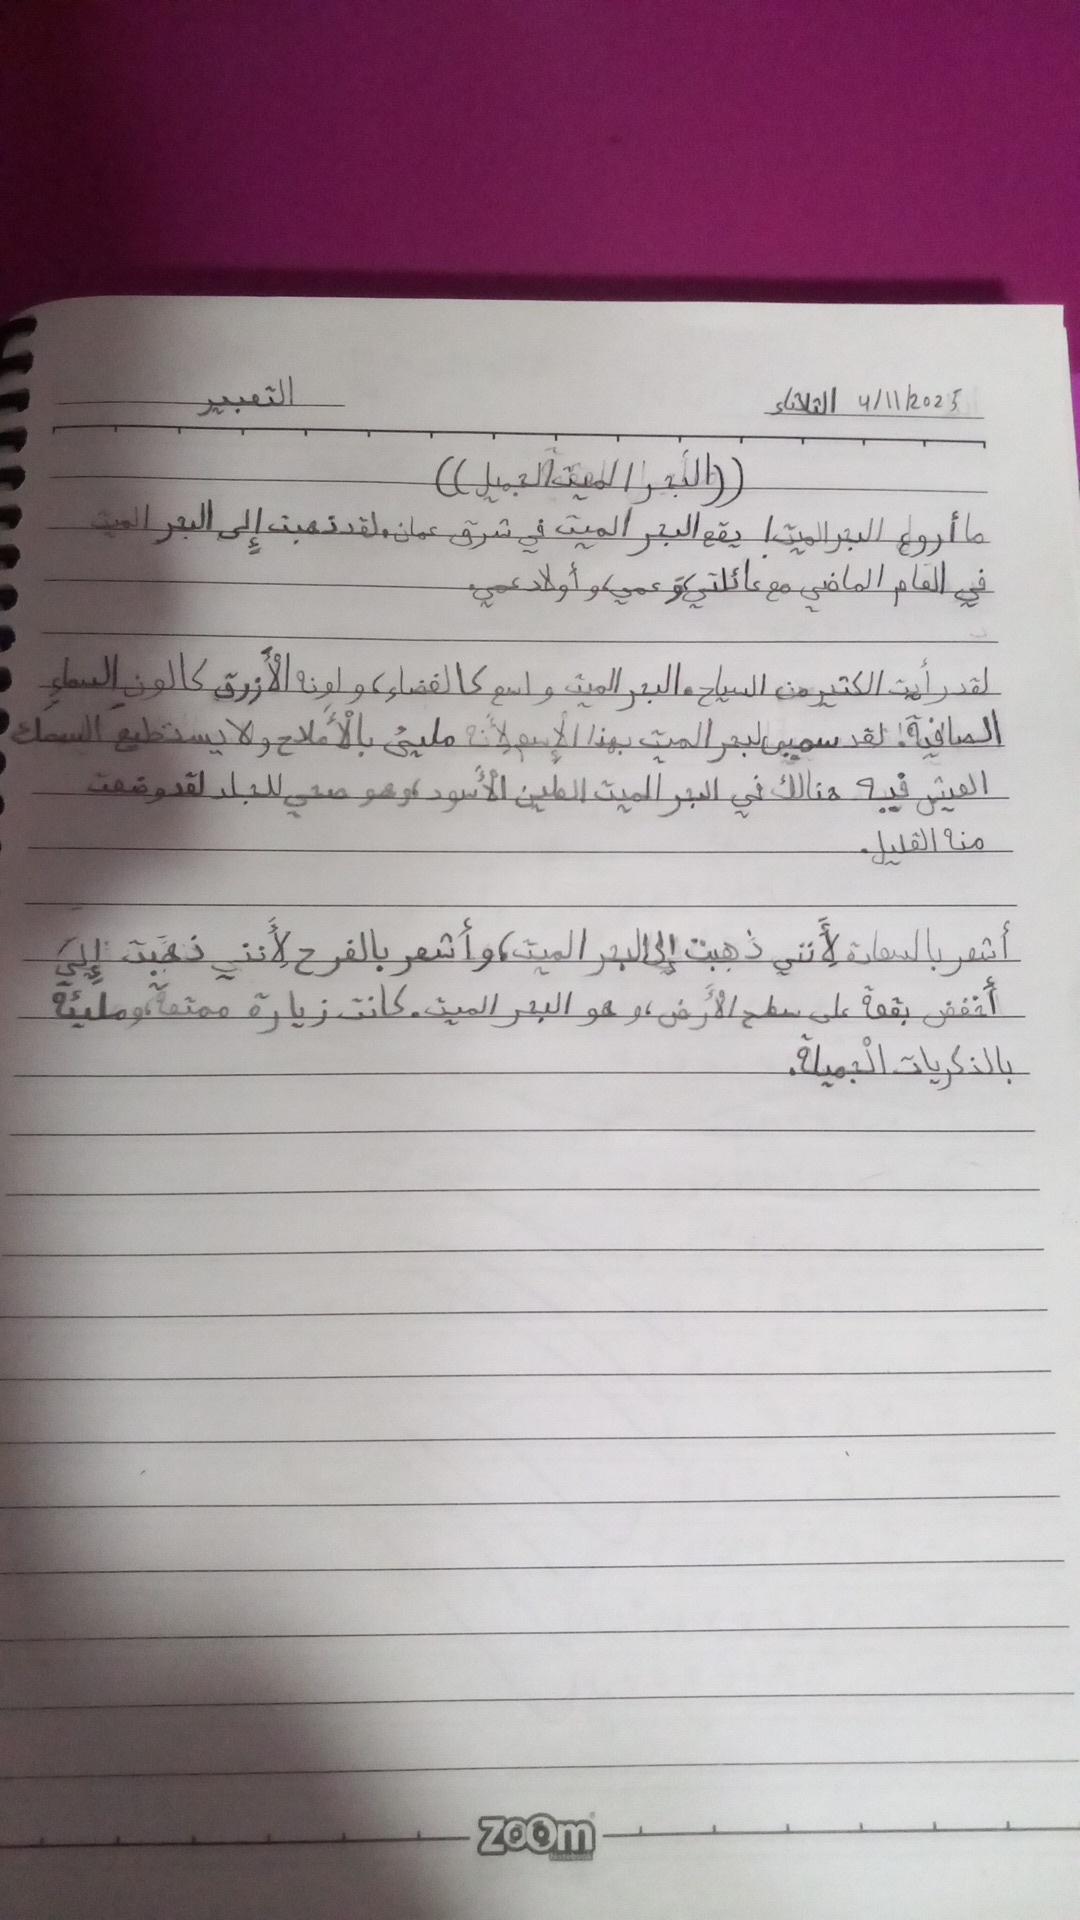 الثلاثاء 4/11/2025
التعبير
((البحر الميت الجميل))
ما أروع البحر الميت! يقع البحر الميت في شرق عمان. لقد ذهبت إلى البحر الميت
في العام الماضي مع عائلتي، و عمي، و أولاد عمي.
لقد رأيت الكثير من السياح. البحر الميت واسع كالفضاء، و لونه الْأَزرق كالون السماءِ
الصافية. لقد سمي البحر الميت بهذا الإسم لأَنه مليئ بالْأَملاح و لا يستطيع السمك
العيش فيه هنالك في البحر الميت الطين الْأَسود، وهو صحي للجلد لقد وضعت
منه القليل.
أشعر بالسعادة لِأَنني ذَهِبت إلى البحر الميت، و أشعر بالفرح لِأَنني ذَهَبت إلى
أخفض بقعة على سطح الْأَرض، و هو البحر الميت. كانت زيارة ممتعة، و مليئة
بالذكريات الْجميلة.
ZOOM